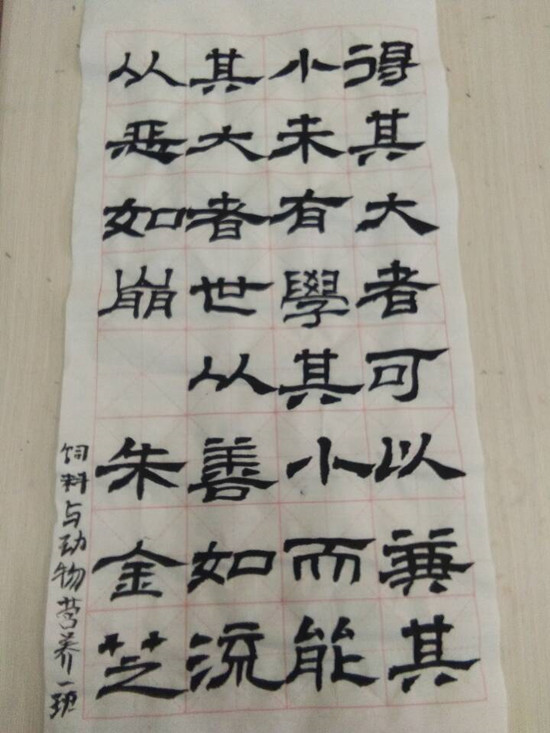 得其大者可以兼其
小未有學其小而能
其大者世从善如流
从恶如崩 朱金芝
饲料与动物营养一班